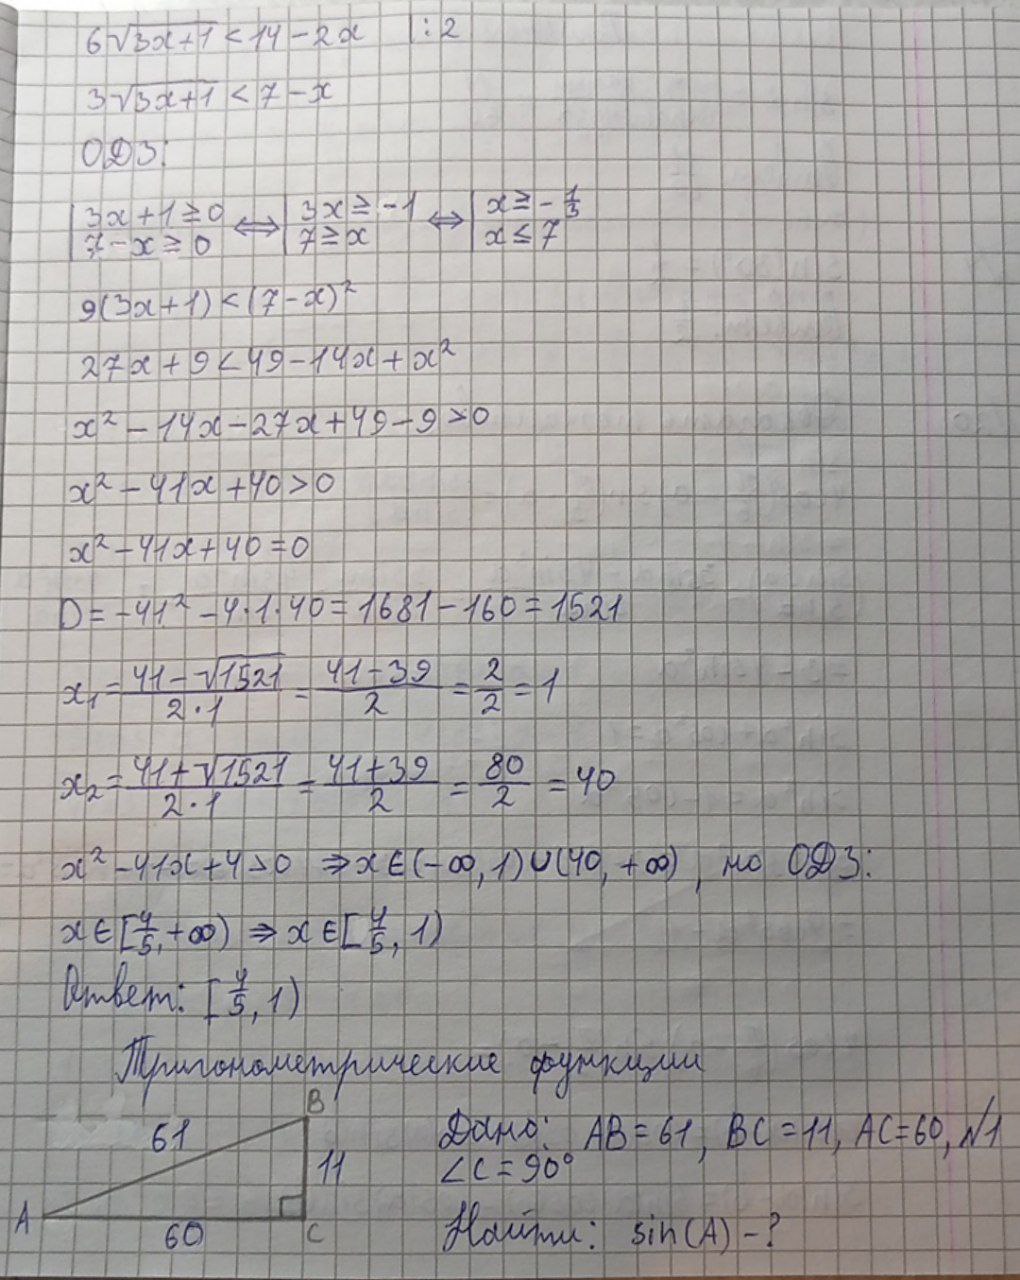 6√3x+1 < 14 - 2x |: 2
3√3x+1 < 7 - x
ОДЗ:
|3x+1 ≥ 0 ⟺ |3x ≥ -1 ⟺ |x ≥ -1/3
|7-x ≥ 0 |7 ≥ x |x ≤ 7
9(3x+1) < (7-x)²
27x + 9 < 49 - 14x + x²
x² - 14x - 27x + 49 - 9 > 0
x² - 41x + 40 > 0
x² - 41x + 40 = 0
D = -41² - 4·1·40 = 1681 - 160 = 1521
x₁ = 41-√1521/2·1 = 41-39/2 = 2/2 = 1
x₂ = 41+√1521/2·1 = 41+39/2 = 80/2 = 40
x² - 41x + 4 > 0 ⇒ x ∈ (-∞, 1) ∪ (40, +∞), но ОДЗ:
x ∈ [4/5, +∞) ⇒ x ∈ [4/5, 1)
Ответ: [4/5, 1)
Тригонометрические функции
B
61
11
A
60
C
Дано: AB = 61, BC = 11, AC = 60, №1
∠C = 90°
Найти: sin(A) - ?